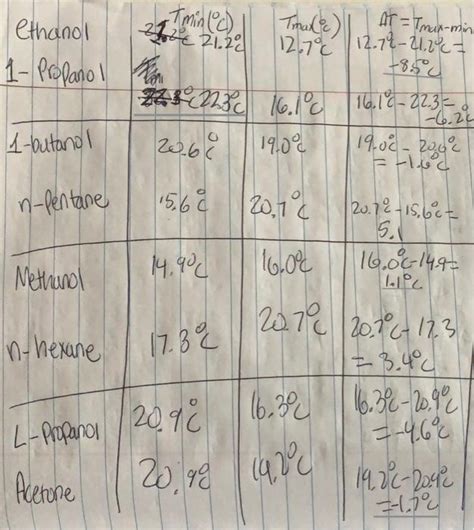 Tmin(°C) Tmax(°C) ΔT = Tmax-min
ethanol 21.2°C 21.2°C 12.7°C 12.7°C-21.2°C =
-8.5°C
1- Propanol
22.3°C 22.3°C 16.1°C 16.1°C-22.3 =
-6.2°C
1-butanol 20.6°C 19.0°C 19.0°C-20.6°C
= -1.6°C
n-pentane 15.6°C 20.7°C 20.7°C-15.6°C=
5.1
Methanol 14.9°C 16.0°C 16.0°C-14.9=
1.1°C
n-hexane 17.3°C 20.7°C 20.7°C-17.3
= 3.4°C
L-Propanol 20.9°C 16.3°C 16.3°C-20.9°C
= -4.6°C
Acetone 20.9°C 19.2°C-20.9°C
= -1.7°C